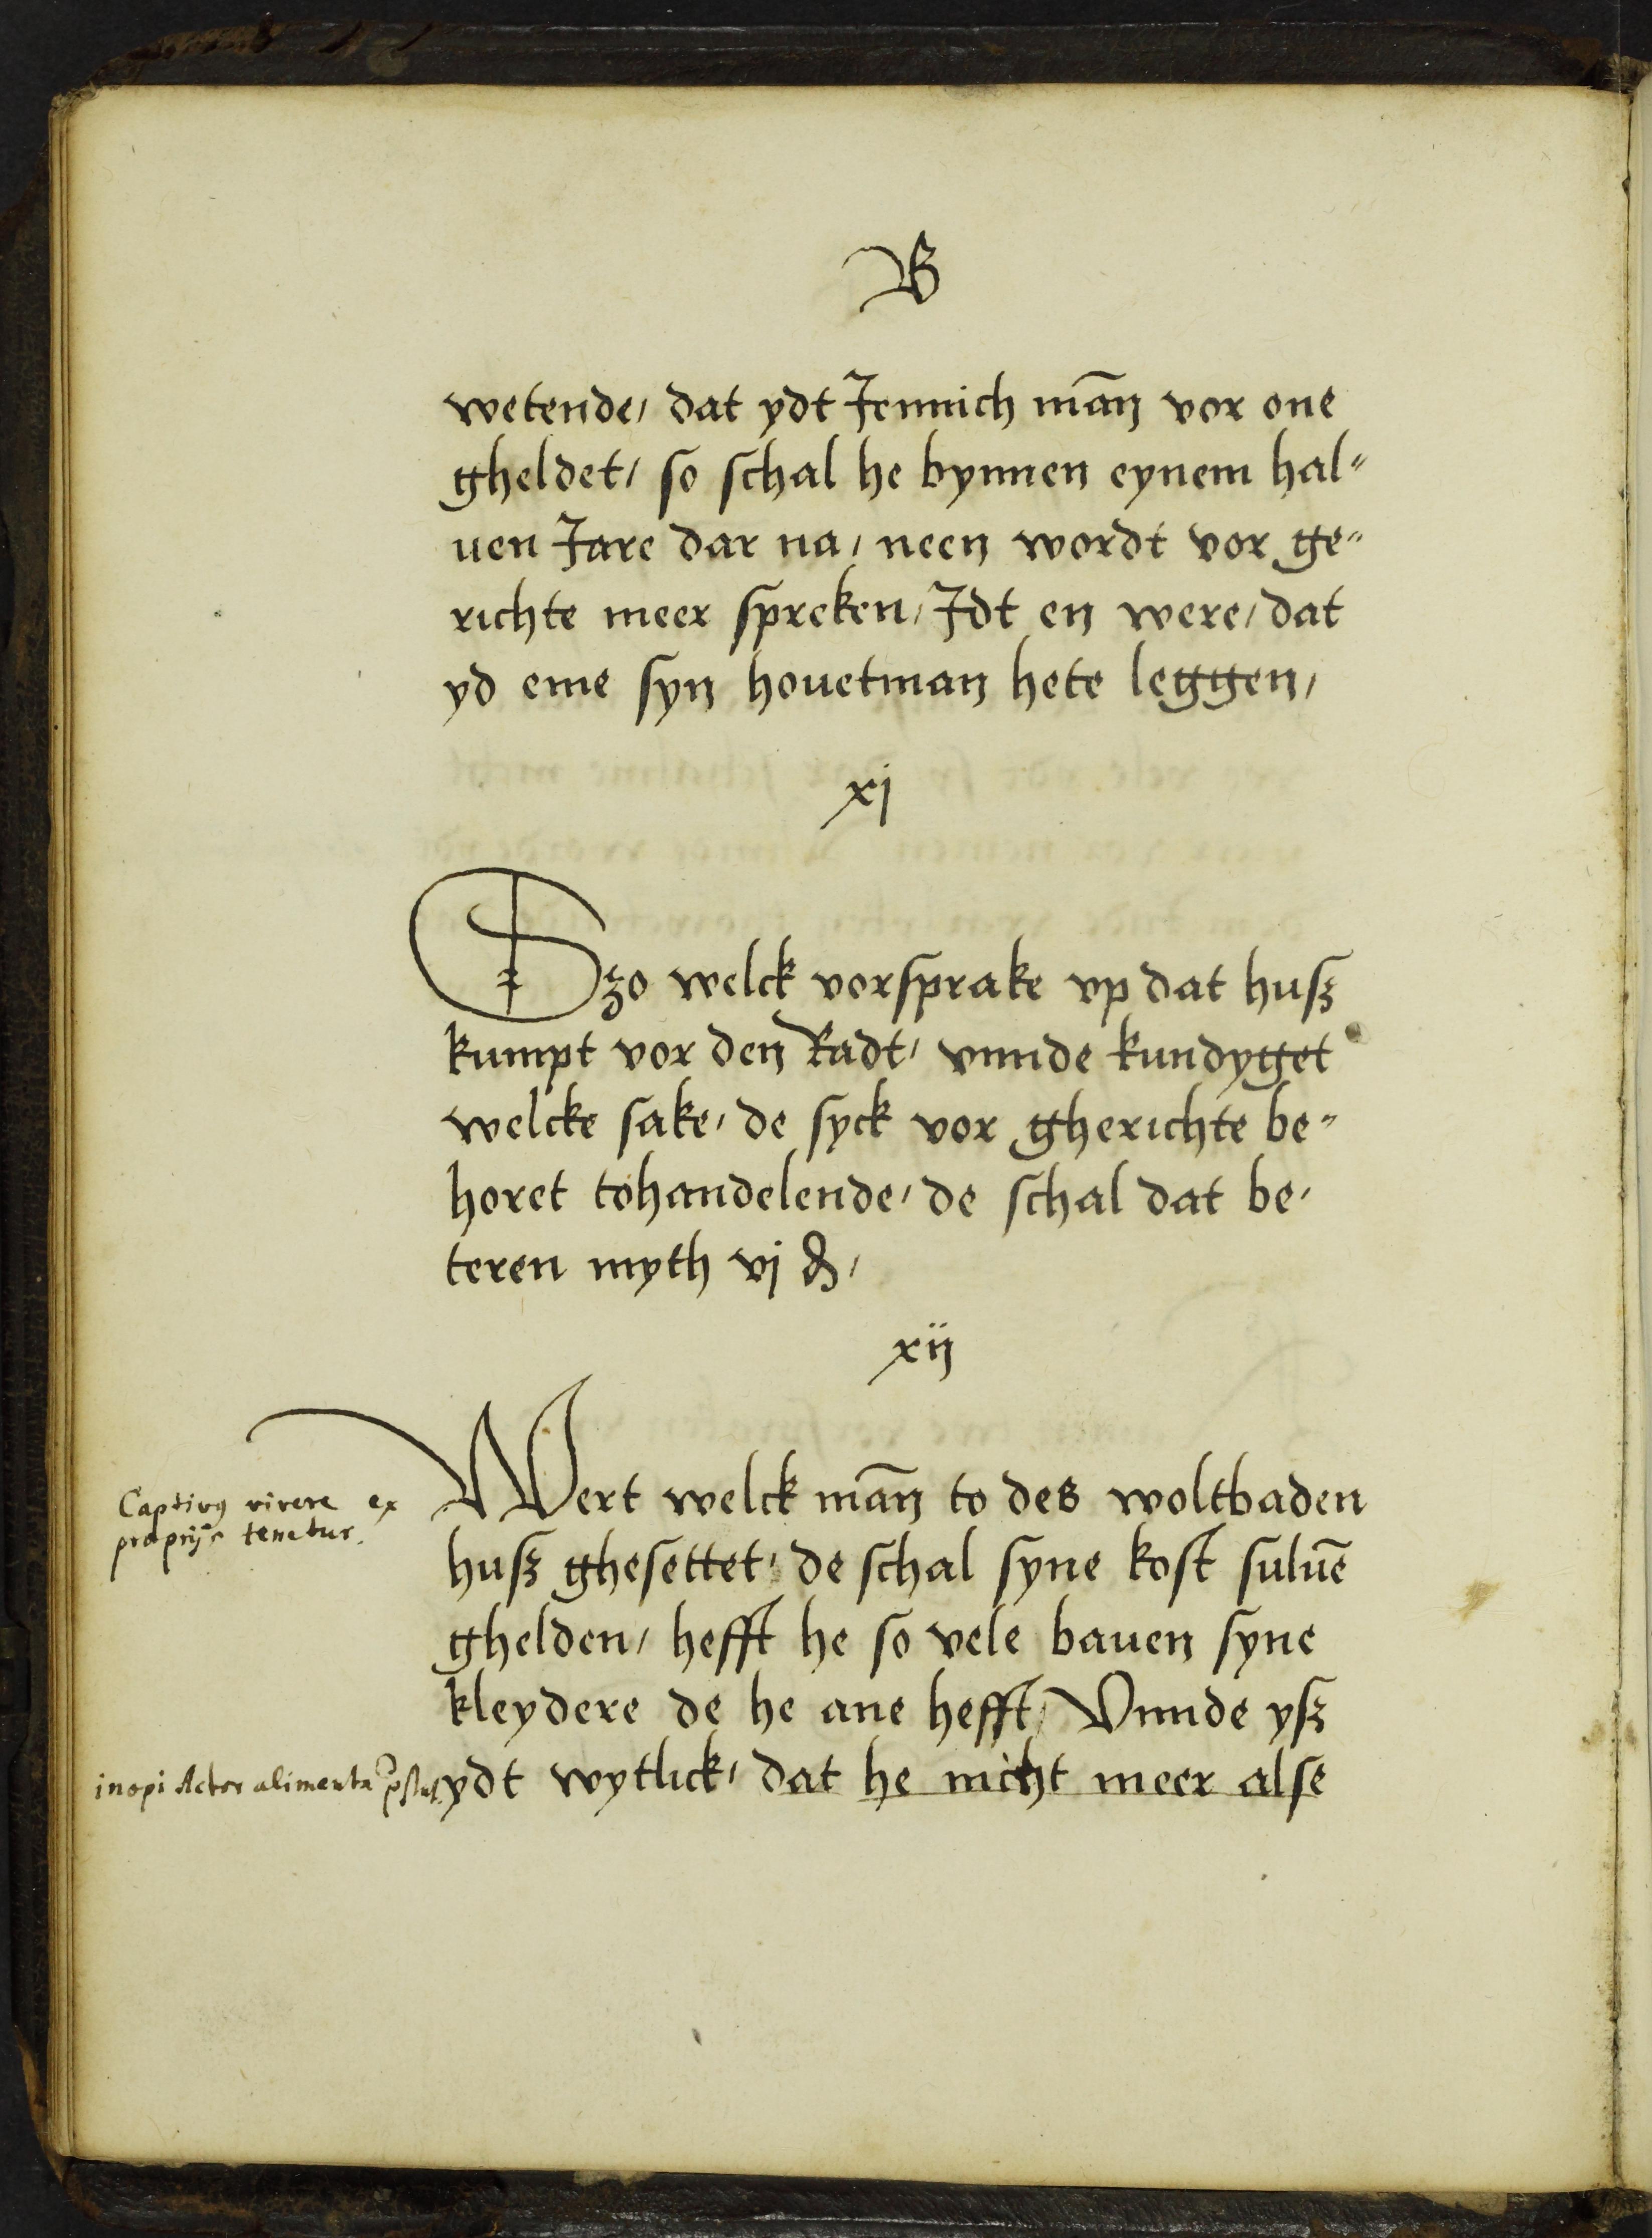 B
wetende, dat ydt Jennich mañ vor one
gheldet, so schal he bynnen eynem hal⸗
uen Jare dar na, neen wordt vor ge⸗
richte meer spreken, Jdt en were, dat
yd eme syn houetman hete leggen,
xj
Szo welck vorsprake vp dat husz
kumpt vor den Radt, vnnde kundyget
welcke sake, de syck vor gherichte be⸗
horet tohandelende, de schal dat be,
teren myth vj ß,
xij
Wert welck mañ to des woltbaden
Captivus vivere ex
proprijs tenetur.
husz ghesettet, de schal syne kost suluē
ghelden, hefft he so vele bauen syne
kleydere de he ane hefft, Vnnde ysz
inopi Actor alimenta
ydt wytlick, dat he nicht meer alse